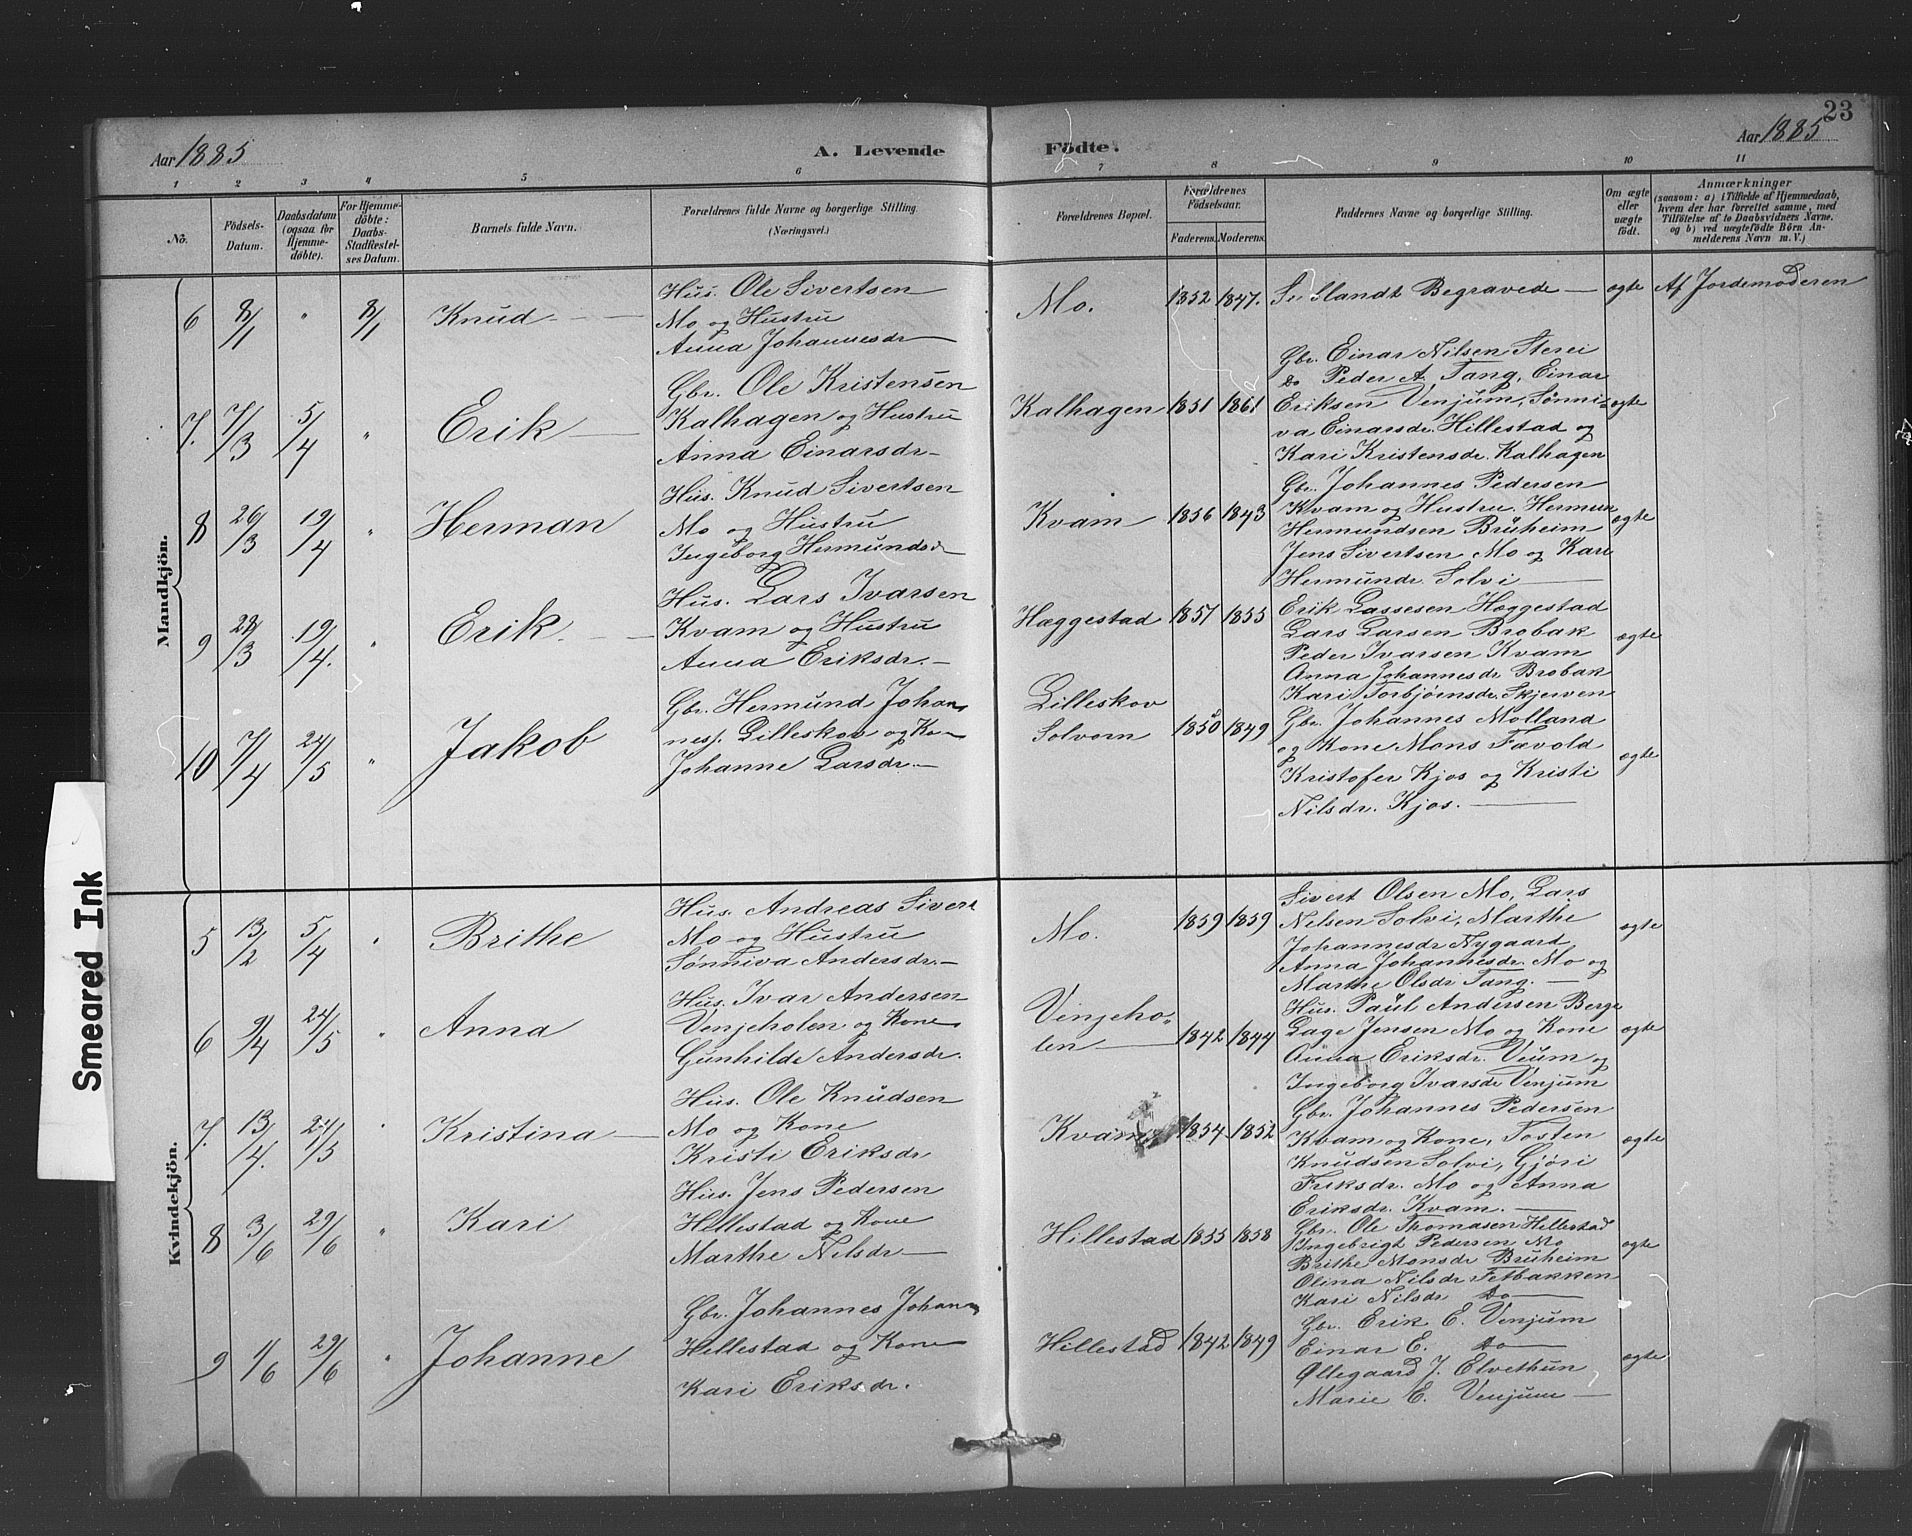 23
Aar 1885
A. Levende
Födte.
Aar 1885
1 2 3 4 5 6 7 8 9 10 11
No.
Födsels-
Datum.
Daabsdatum
(ogsaa for
Hjemme-
døbte).
For Hjemme-
døbte:
Daabs-
Stadfæstel-
ses Datum.
Barnets fulde Navn.
Forældrenes fulde Navne og borgerlige Stilling.
(Næringsvei.)
Forældrenes Bopæl.
Forældrenes
Födselsaar.
Faderens. Moderens.
Faddernes Navne og borgerlige Stilling.
Om ægte
eller
uægte
födt.
Anmærkninger
(saasom: a) i Tilfælde af Hjemmedaab,
hvem der har forrettet samme, med
Tilföielse af to Daabsvidners Navne.
og b) ved uægtefödte Börn An-
melderens Navn m. V.)
Mandkjön.
6 8/1 " 8/1 Knud
Hus. Ole Sivertsen
Mo og Hustru
Anna Johannesdr
Mo. 1852 1847.
Begravede
ægte
Af Jordemoderen
7. 7/3 5/4 " Erik
Gbr. Ole Kristensen
Kalhagen og Hustru
Anna Einarsdr
Kalhagen 1851 1861
Gbr. Einar Nilsen Sterei
Do Peder A. Tang, Einar
Eriksen Venjum, Sønni-
va Einarsdr. Hillestad og
Kari Kristensdr. Kalhagen
ægte
8 26/3 19/4 " Herman
Hus. Knud Sivertsen
Mo og Hustru
Ingeborg Hermundsd
Kvam 1856 1843
Gbr. Johannes Pedersen
Kvam og Hustru. Hermun
Hermundsen Bruheim
Jens Sivertsen Mo og Kari
Hermundr. Solvi
ægte
9 22/3 19/4. " Erik
Hus. Lars Ivarsen
Kvam og Hustru
Anna Eriksdr.
Hæggestad 1857 1855
Erik Lassesen Hæggestad
Lars Larsen Brobak
Peder Ivarsen Kvam
Anna Johannesdr Brobak
Kari Torbjørnsdr. Skjerven
ægte
10 7/4 24/5 " Jakob
Gbr. Hermund Johan
nesf. Lilleskov og Ko-
Johanne Larsdr.
Lilleskov
Solvorn 1850 1849
Gbr. Johannes Molland
og Kone Mons Fævold
Kristofer Kjos og Kristi
Nilsdr. Kjos.
ægte
Kvindekjön.
5 13/2 5/4 " Brithe
Hus. Andreas Sivert
Mo og Hustru
Sønniva Andersdr.
Mo. 1859 1859
Sivert Olsen Mo, Lars
Nelsen Solvi, Marthe
Johannesdr Nygaard
Anna Johannesdr. Mo og
Marthe Olsdr Tang.
ægte
6 9/4 24/5 " Anna
Hus. Ivar Andersen
Venjeholen og Kone
Gunhilde Andersdr.
Venjeho-
len 1842 1844
Hus. Paul Andersen Berge
Lage Jensen Mo og Kone
Anna Eriksdr. Veum og
Ingeborg Ivarsdr Venjum
ægte
7. 13/4. 24/5 " Kristina
Hus. Ole Knudsen
Mo og Kone
Kristi Eriksdr
Kvam 1854 1852
Gbr. Johannes Pedersen
Kvam og Kone, Tosten
Knudsen Solvi, Gjøri
Eriksdr. Mo og Anna
Eriksdr. Kvam.
ægte
8 3/6 29/6 " Kari
Hus. Jens Pedersen
Hillestad og Kone
Marthe Nilsdr
Hillestad 1855 1858
Gbr. Ole Thomasen Hillestad
Ingebrigt Pedersen Mo
Brithe Monsdr Bruheim
Olina Nilsdr Fetbakken
Kari Nilsdr Do
ægte
9 1/6 29/6 " Johanne
Gbr. Johannes Johan
Hillestad og Kone
Kari Eriksdr.
Hillestad 1842 1849
Gbr. Erik E. Venjum
Einar E. Do
Øllegaard J. Elvethun
Marie E. Venjum
ægte
Smeared Ink